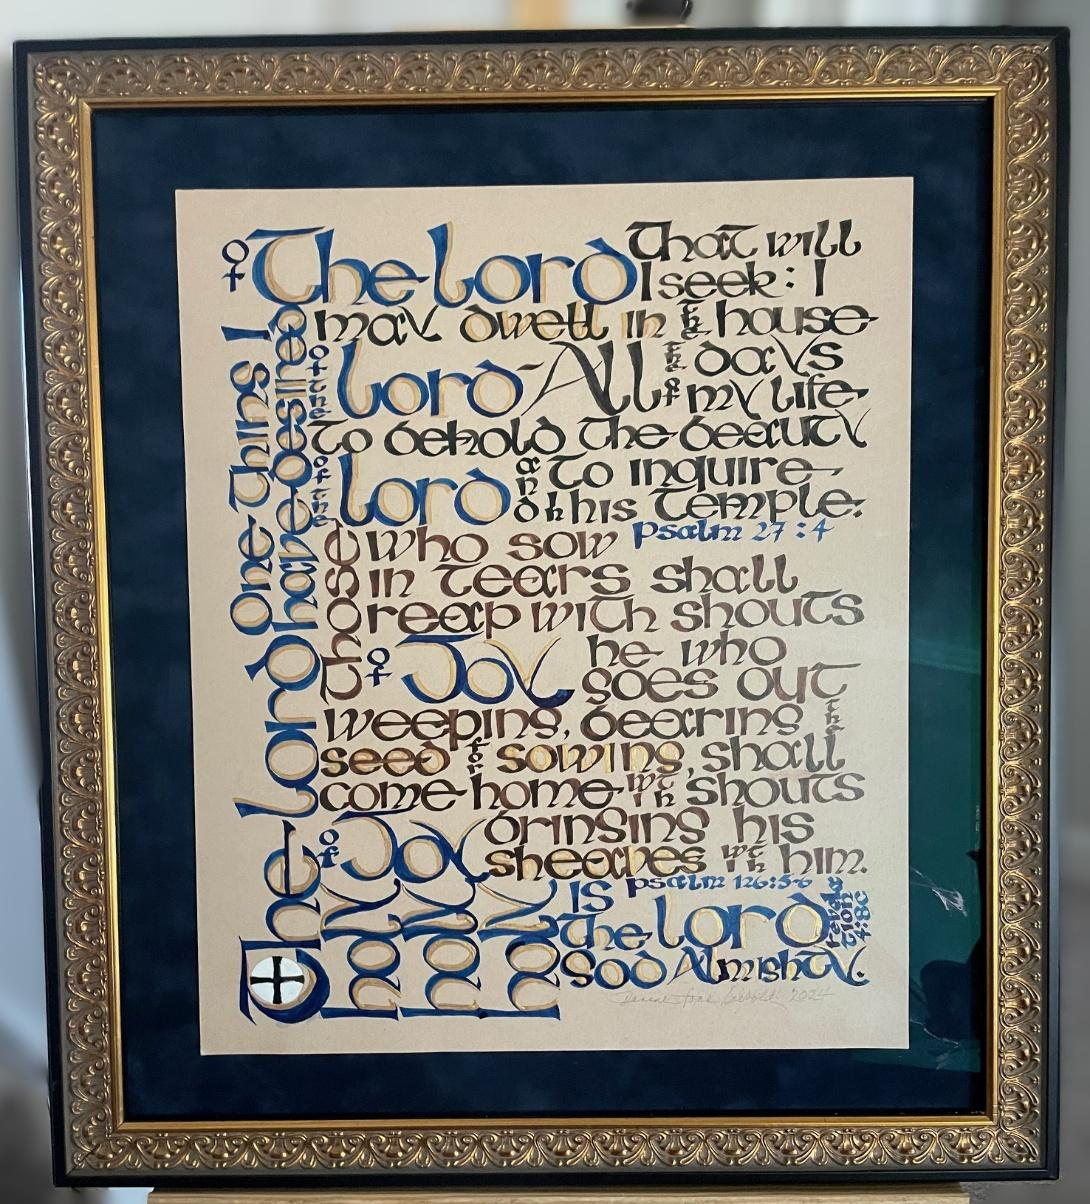 One thing I
have desired
of
The Lord
That will
I seek: I
may dwell in the house
of the Lord All the days
of my life
To behold the beauty
of the Lord and To inquire
in his Temple:
Psalm 27:4
Those who sow
in Tears shall
reap with shouts
of Joy he who
goes out
weeping, bearing the
seed for sowing, shall
come home with shouts
of Joy bringing his
sheaves with him.
Psalm 126:5-6 &
revelation
4:8c
The Lord
holy
holy
holy
is
The Lord
God Almighty.
2024